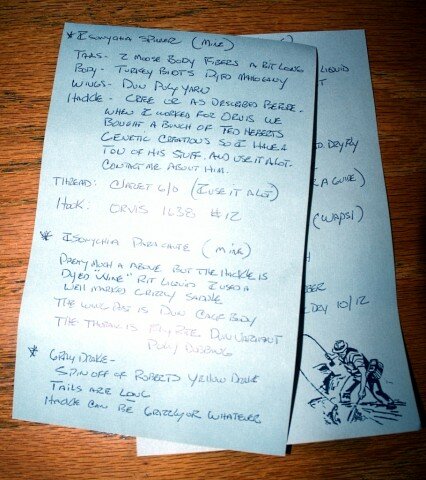 * Isonychia Spinner (Mine)
Tails - 2 Moose Body Fibers a bit long
Body - Turkey Biots Dyed Mahogany
Wings - Dun Poly Yarn
Hackle - Cree or as described before.
When I worked for Orvis we
bought a bunch of Ted Heberts
Genetic Creations so I have a
ton of his stuff. And use it alot.
Contact me about him.
Thread: Claret 6/0 (I use it alot)
Hook: Orvis 1638 #12
* Isonychia Parachute (Mine)
Pretty much a above but the hackle is
Dyed "Wine" Rit Liquid I used a
well marked Grizzly Saddle
The wing post is Dun
The Thorax is Fly Rite Dun Variant
Poly Dubbing
* Gray Drake -
Spin off of Roberts Yellow Drake
Tails are long
Hackle can be Grizzly or whatever
)
Liquid
Dry Fly
a Guide)
(Wapsi)
10/12